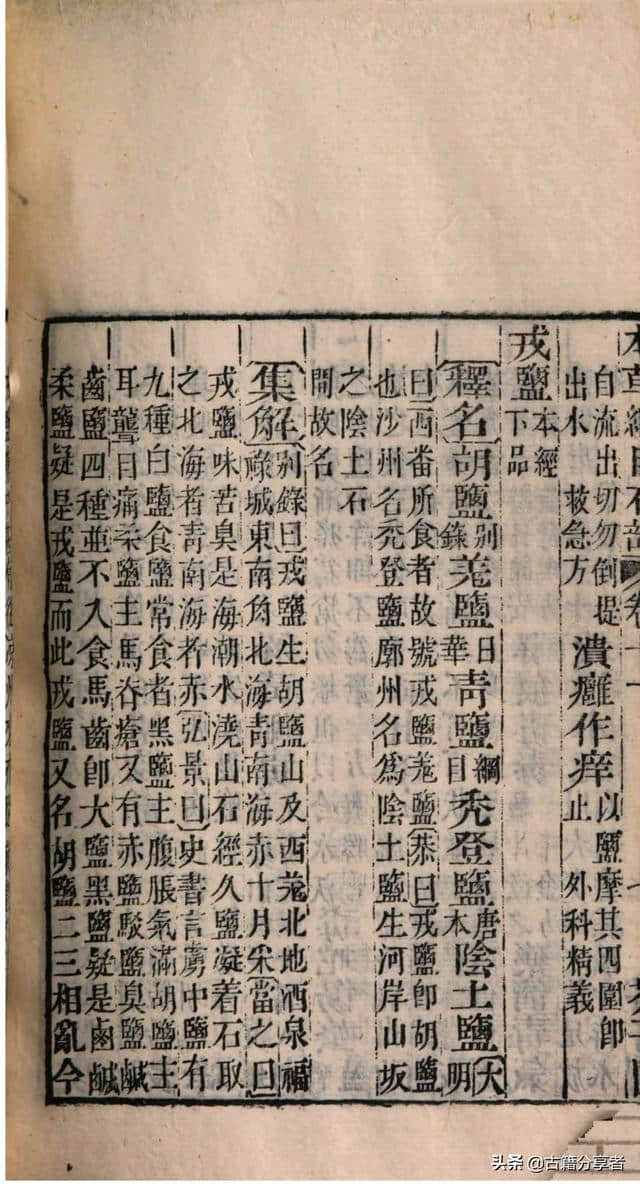 自流出切勿倒提
出水 救急方
潰癰作痒
以鹽摩其四圍即
止 外科精義
戎鹽本經下品
釋名胡鹽別錄羌鹽日華青鹽綱目禿登鹽唐本陰土鹽大明
曰西番所食者故號戎鹽羌鹽恭曰戎鹽即胡鹽
也沙州名禿登鹽廓州名為陰土鹽生河岸山坂
之陰土石
間故名
集解別錄曰戎鹽生胡鹽山及西羌北地酒泉福
祿城東南角北海青南海赤十月采當之曰
戎鹽味苦臭是海潮水澆山石經久鹽凝着石取
之北海者青南海者赤弘景曰史書言虜中鹽有
九種白鹽食鹽常食者黑鹽主腹脹氣滿胡鹽主
耳聾目痛柔鹽主馬脊瘡又有赤鹽駁鹽臭鹽鹹
齒鹽四種並不入食馬齒即大鹽黑鹽疑是鹵鹹
柔鹽疑是戎鹽而此戎鹽又名胡鹽二三相亂今
头条 @古籍分享者